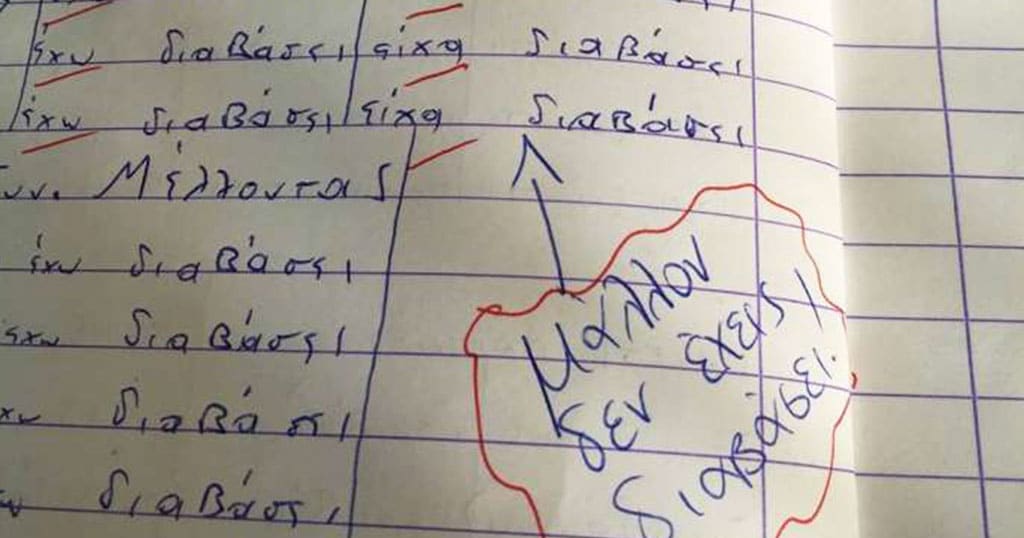 έχω διαβάσει είχα διαβάσει
έχω διαβάσει είχα διαβάσει
υν. Μέλλοντας
έχω διαβάσει
έχω διαβάσει
χω διαβάσει
ω διαβάσει
Μάλλον
δεν έχεις
διαβάσει.